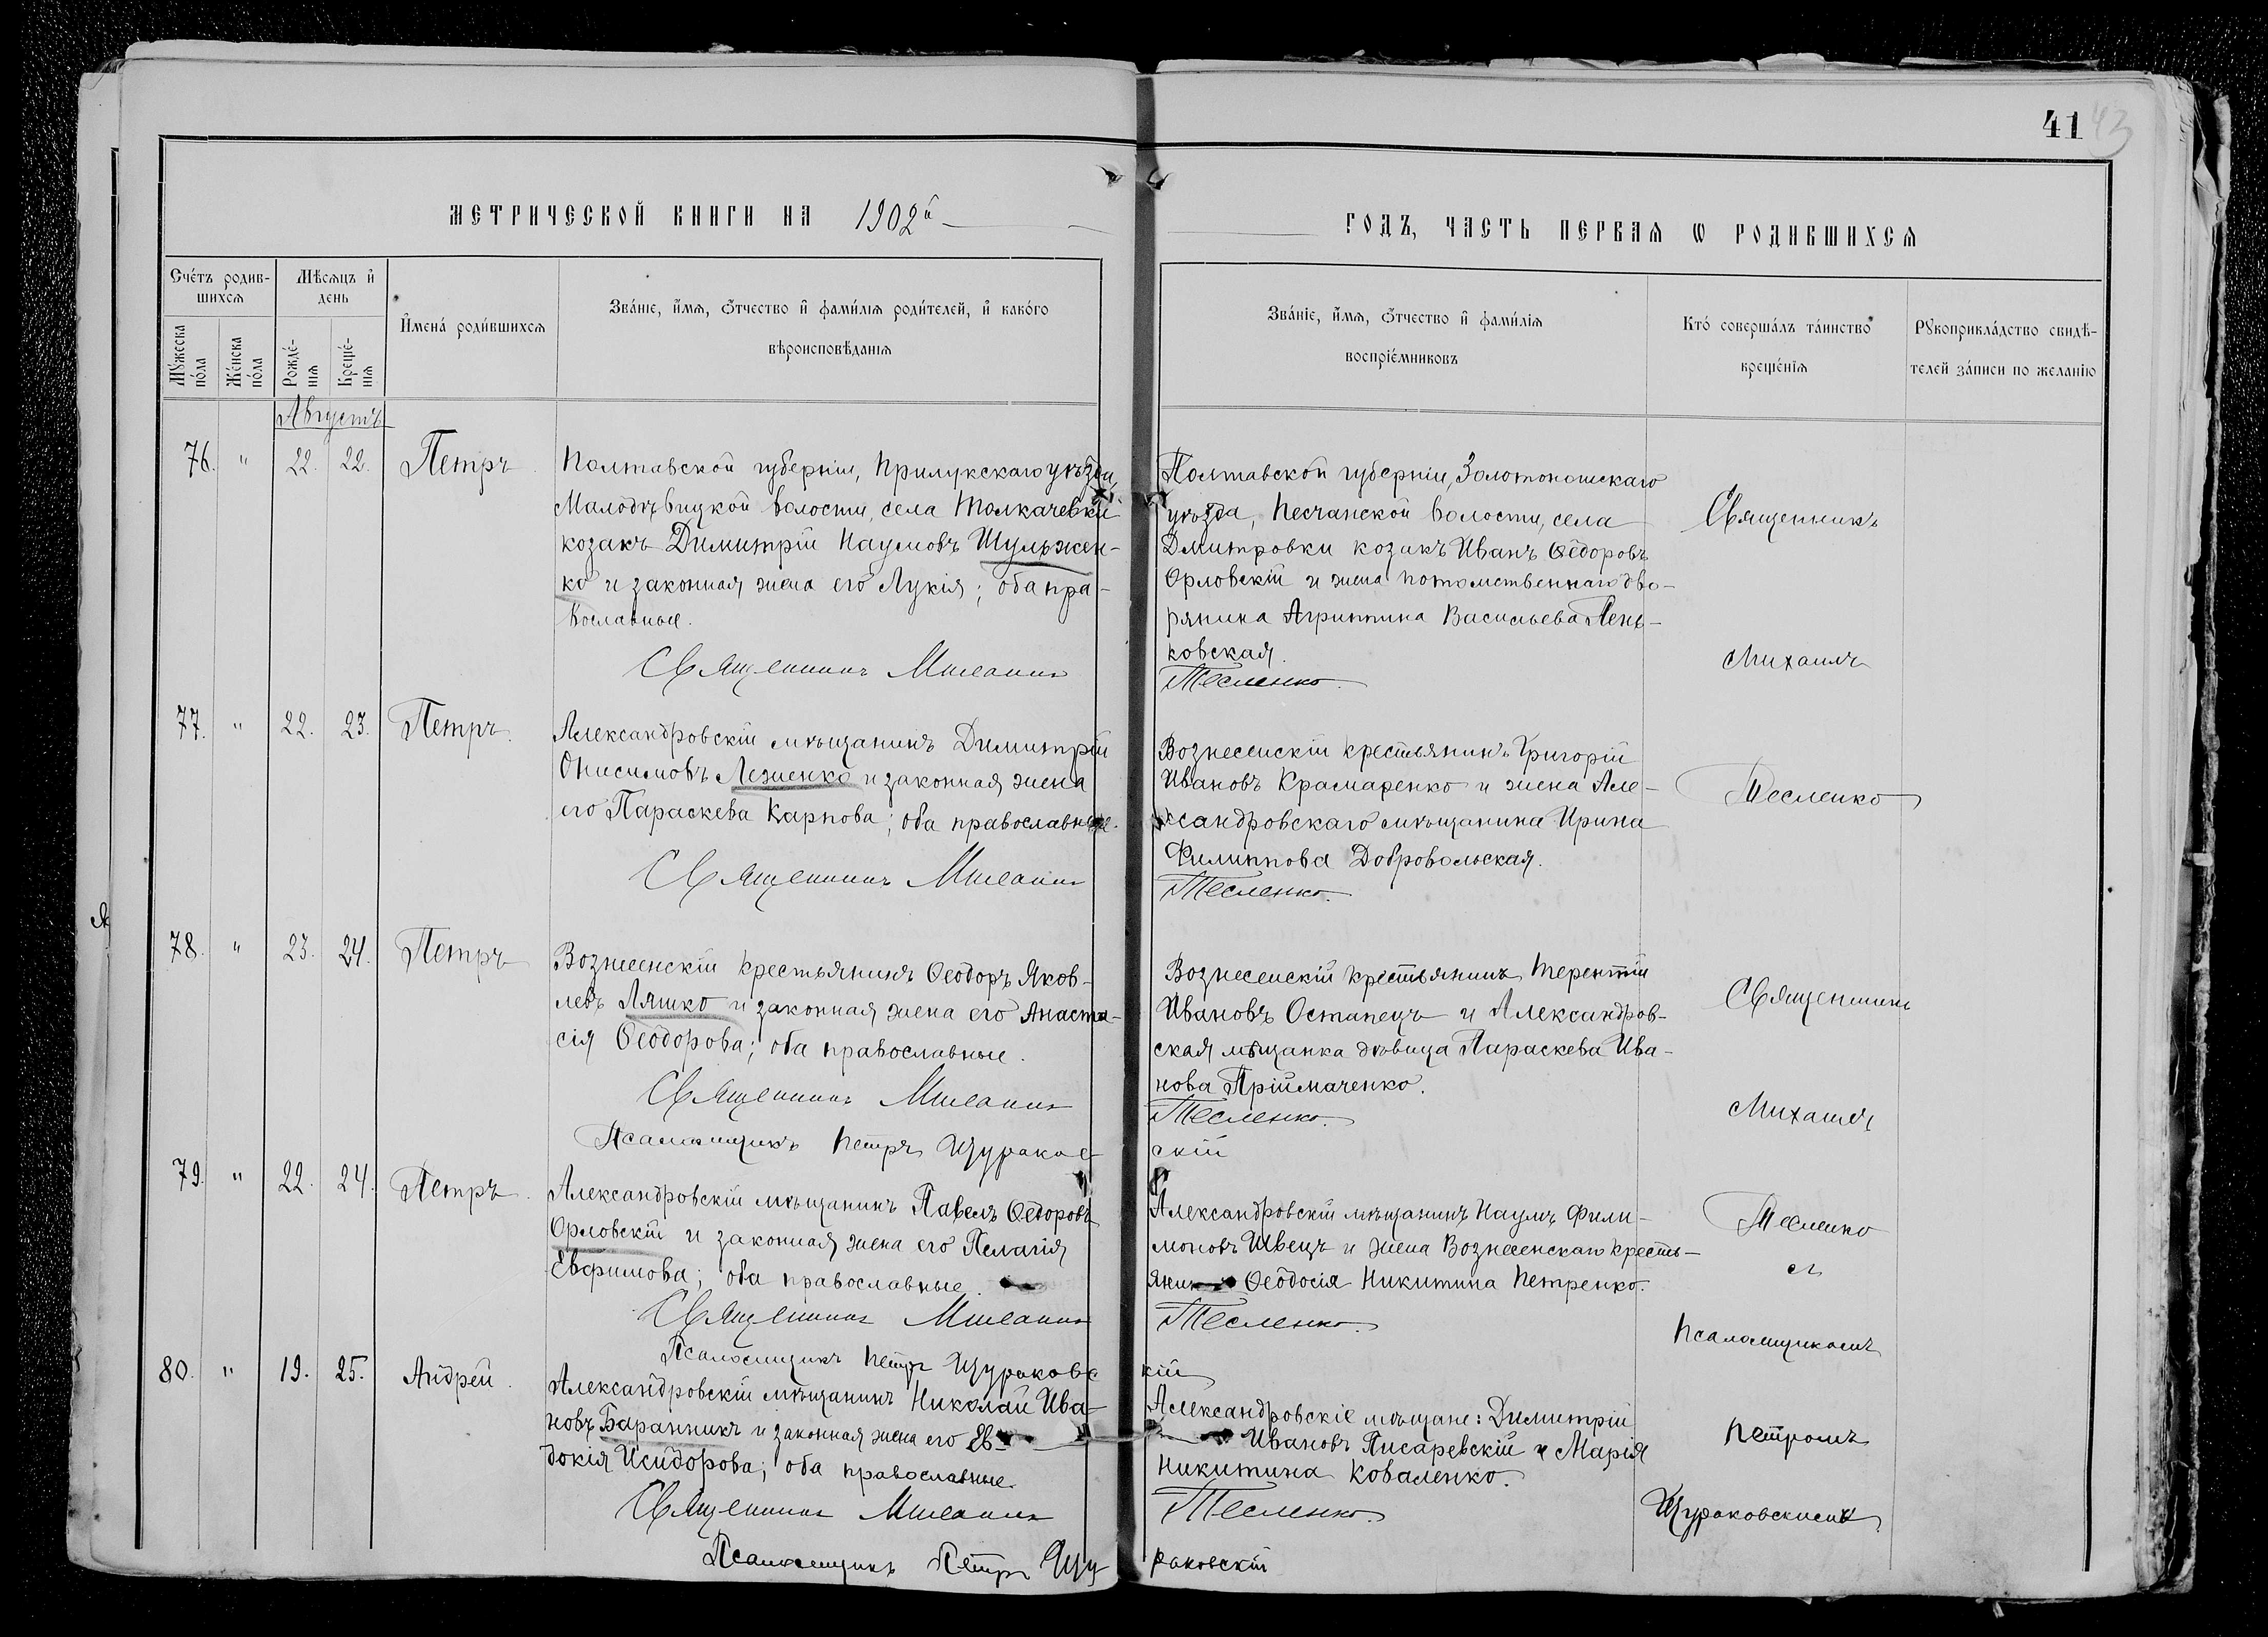 41 43
МЕТРИЧЕСКОЙ КНИГИ НА 1902й ГОДЪ, ЧАСТЬ ПЕРВАЯ Ѡ РОДИВШИХСЯ
Счетъ родив-
шихся
Мужеска
пола
Женска
пола
Мѣсяцъ и
день
Рожде-
нія
Креще-
нія
Имена родившихся
Званіе, имя, отчество и фамилія родителей, и какого
вѣроисповѣданія
Званіе, имя, отчество и фамилія
воспріемниковъ
Кто совершалъ таинство
крещенія
Рукоприкладство свидѣ-
телей записи по желанію
Августъ
76. " 22. 22. Петръ.
Полтавской губерніи, Прилукскаго уѣзда,
Малодѣвицкой волости, села Толкачевки
козакъ Димитрій Наумовъ Шульжен-
ко и законная жена его Лукія; оба пра-
вославные.
Священникъ Михаилъ
Полтавской губерніи, Золотоношскаго
уѣзда, Песчанской волости, села
Дмитровки козакъ Иванъ Ѳедоровъ
Орловскій и жена потомственнаго дво-
рянина Агриппина Васильева Лень-
ковская.
Тесленко.
Священникъ
Михаилъ
77. " 22. 23. Петръ.
Александровскій мѣщанинъ Димитрій
Онисимовъ Леженко и законная жена
его Параскева Карпова; оба православные.
Священникъ Михаилъ
Вознесенскій крестьянинъ Григорій
Ивановъ Крамаренко и жена Але-
ксандровскаго мѣщанина Ирина
Филиппова Добровольская.
Тесленко.
Тесленко
78. " 23. 24. Петръ
Вознесенскій крестьянинъ Ѳеодоръ Яков-
левъ Ляшко и законная жена его Анаста-
сія Ѳеодорова; оба православные.
Священникъ Михаилъ
Псаломщикъ Петръ Щураков-
Вознесенскій крестьянинъ Терентій
Ивановъ Остапецъ и Александров-
ская мѣщанка дѣвица Параскева Ива-
нова Пріймаченко.
Тесленко.
скій
Священникъ
Михаилъ
79. " 22. 24. Петръ.
Александровскій мѣщанинъ Павелъ Ѳедоровъ
Орловскій и законная жена его Пелагія
Евфимова; оба православные.
Священникъ Михаилъ
Псаломщикъ Петръ Щураковс
Александровскій мѣщанинъ Наумъ Фили-
моновъ Швецъ и жена Вознесенскаго кресть-
янина Ѳеодосія Никитина Петренко.
Тесленко.
кій
Тесленко
съ
псаломщикомъ
80. " 19. 25. Андрей.
Александровскій мѣщанинъ Николай Ива-
новъ Баранникъ и законная жена его Ев-
докія Исидорова; оба православные.
Священникъ Михаилъ
Псаломщикъ Петръ Щу-
Александровскіе мѣщане: Димитрій
Ивановъ Писаревскій и Марія
Никитина Коваленко.
Тесленко.
раковскій
Петромъ
Щураковскимъ